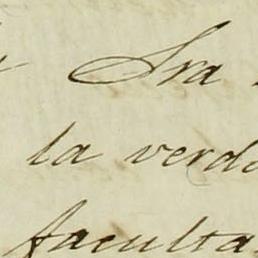 Sra
la verda
faculta